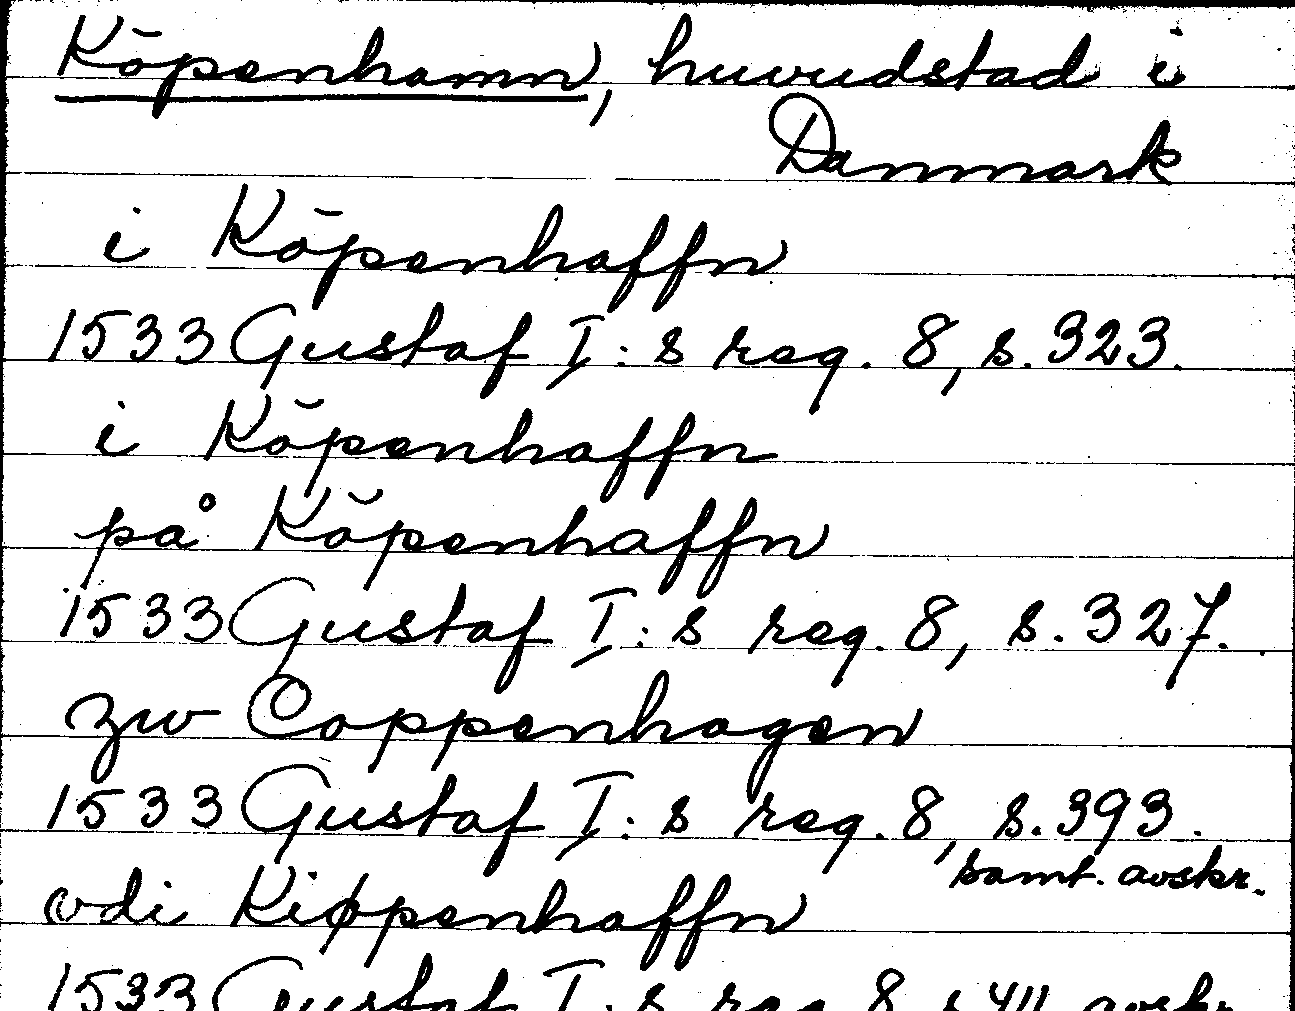 Köpenhamn, huvudstad i
Danmark
i Köpenhaffn
1533 Gustaf I:s reg. 8, s. 323.
i Köpenhaffn
på Köpenhaffn
1533 Gustaf I:s reg. 8, s. 327.
zw Coppenhagen
1533 Gustaf I:s reg. 8, s. 393.
samt. avskr.
vdi Kiøppenhaffn
1533 Gustaf I:s reg. 8, s. 411 avskr.